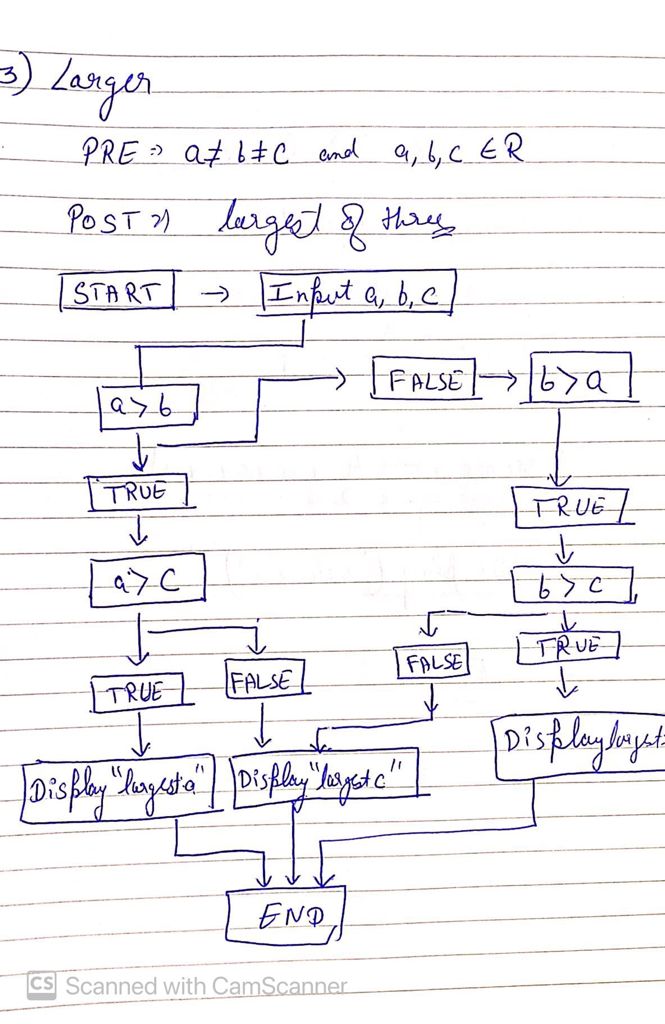 3) Larger
PRE ⇒ a ≠ b ≠ c and a, b, c ∈ R
POST ⇒ largest of three
START → Input a, b, c
a > b
FALSE → b > a
TRUE
TRUE
a > c
b > c
TRUE
FALSE
FALSE
TRUE
Display "largest a"
Display "largest c"
Display largest
END
CS Scanned with CamScanner